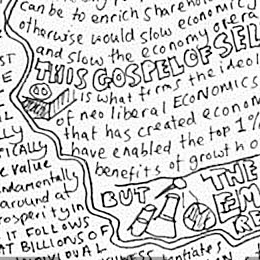 can be to enrich shareho
otherwise would slow economic
and slow the economy
THIS GOSPEL OF SEL
is what forms the ideol
of neo liberal ECONOMICS
that has created econom
have enabled the top 1%
benefits of growth o
BUT
THE
EM
RE
ST
E
IT
LLY
ICALLY
E VALUE
ndamentally
around at
rosperity in
IT FOLLOWS
AT BILLIONS OF
INDIVIDUAL